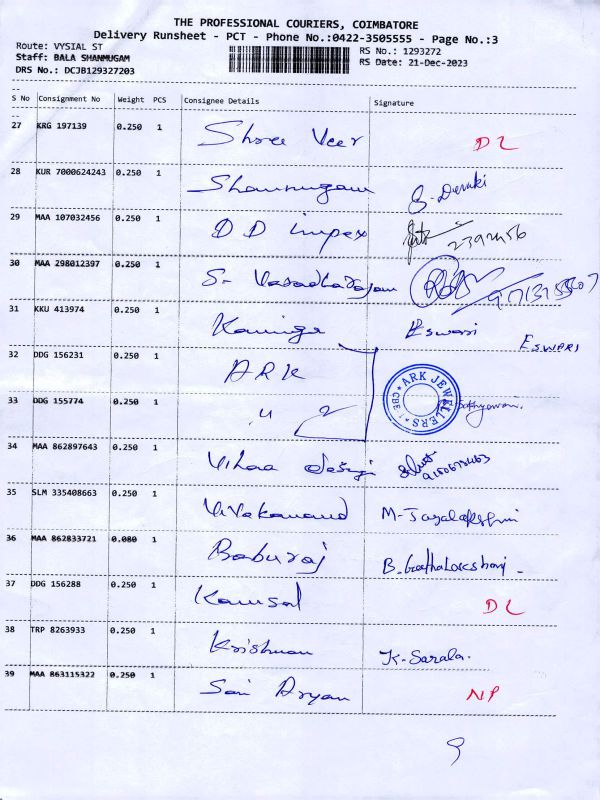 THE PROFESSIONAL COURIERS, COIMBATORE
Delivery Runsheet - PCT - Phone No.:0422-3505555 - Page No.:3
Route: VYSIAL ST RS No.: 1293272
Staff: BALA SHANMUGAM RS Date: 21-Dec-2023
DRS No.: DCJB129327203
S No Consignment No Weight PCS Consignee Details Signature
27 KRG 197139 0.250 1 Shree Veer DL
28 KUR 7000624243 0.250 1 Shanmugam S. Devaki
29 MAA 107032456 0.250 1 D D impex
30 MAA 298012397 0.250 1 S. Varadharajan
31 KKU 413974 0.250 1 Eswari ESWARI
32 DDG 156231 0.250 1 ARK
ARK JEWELLERS
33 DDG 155774 0.250 1 " 2
34 MAA 862897643 0.250 1
35 SLM 335408663 0.250 1 Vivekanand M-Jayalakshmi
36 MAA 862833721 0.080 1 Baburaj
37 DDG 156288 0.250 1 Kamsal DL
38 TRP 8263933 0.250 1 Krishnan K-Sarala.
39 MAA 863115322 0.250 1 Sai Aryan NP
9